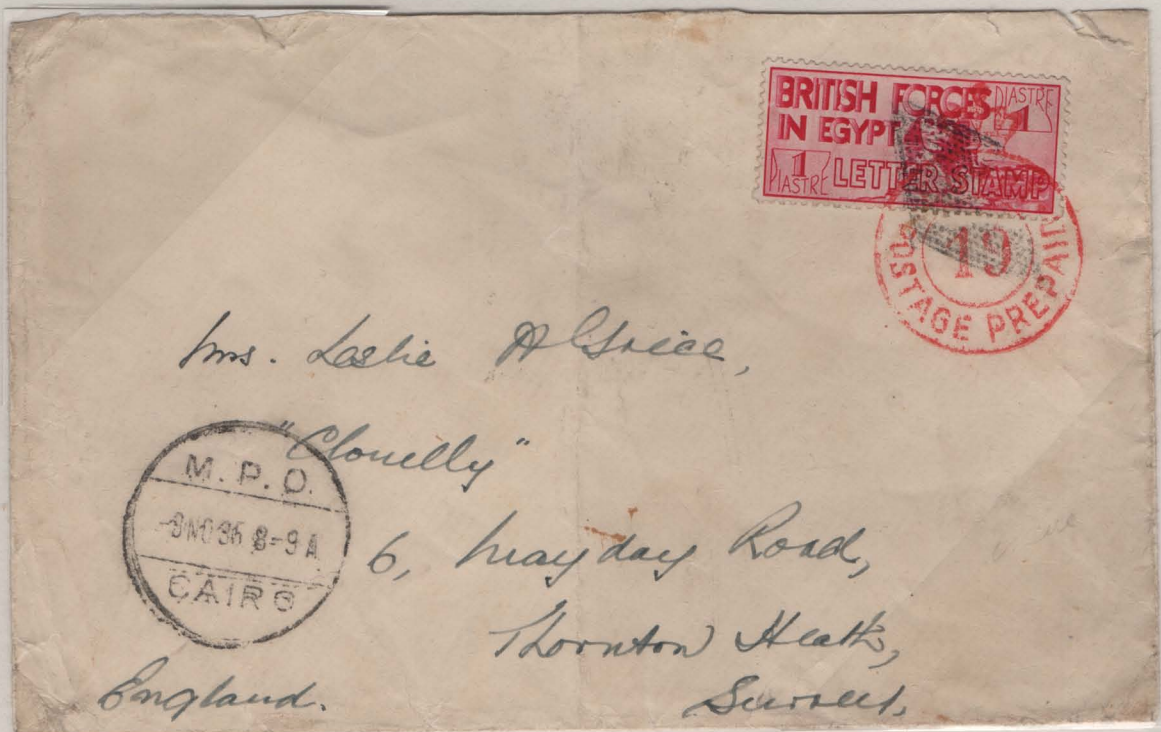 BRITISH FORCES
IN EGYPT
PIASTRE
1
1
PIASTRE
LETTER STAMP
19
POSTAGE PREPAID
Mrs. Leslie
"Clovelly"
6, Mayday Road,
Thornton Heath,
Surrey,
England.
M.P.O.
NO 35 8-9 A
CAIRO